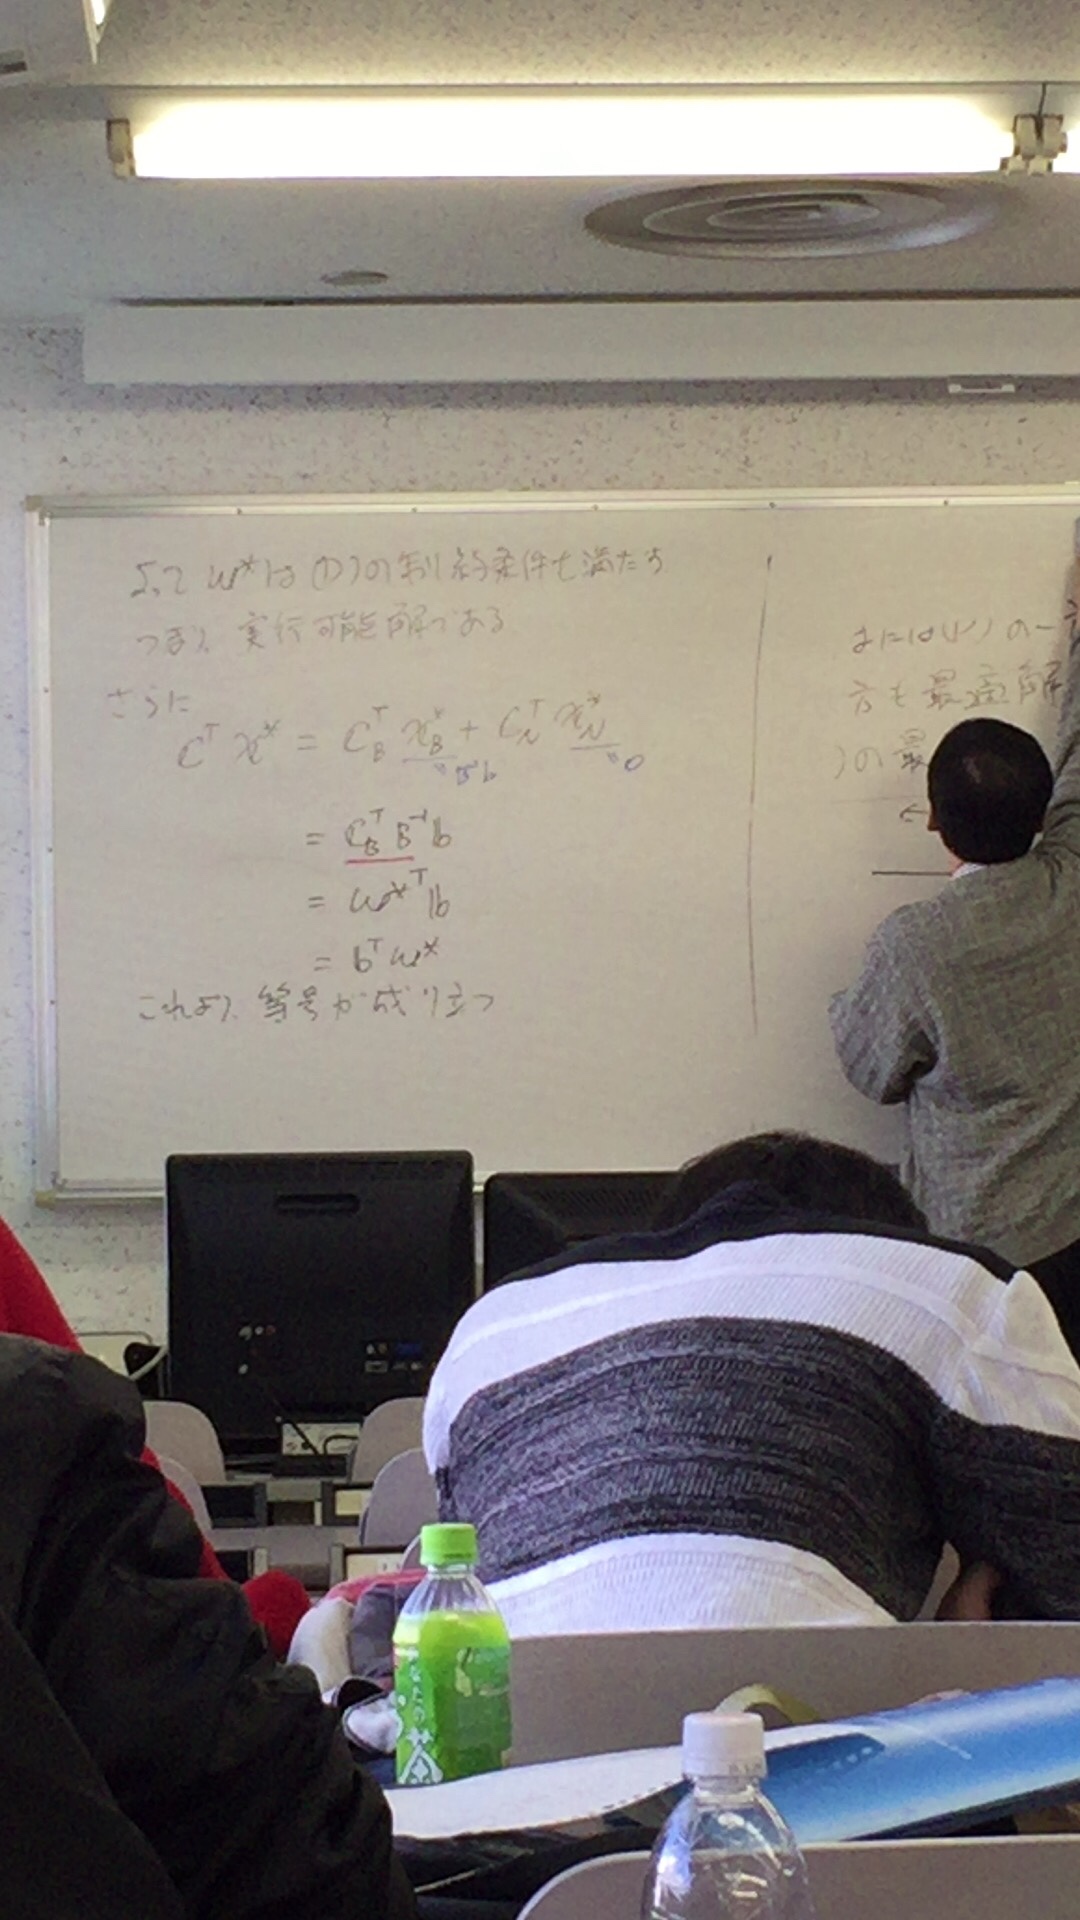 よって w*は(D)の制約条件も満たす
つまり、実行可能解である
さらに
Cᵀx* = C_Bᵀ x_B* + C_Nᵀ x_N*
" B⁻¹b " 0
= C_Bᵀ B⁻¹ b
= w*ᵀ b
= bᵀ w*
これより、等号が成り立つ
または(P)の一
方も最適解
)の最
←
あなたの
茶